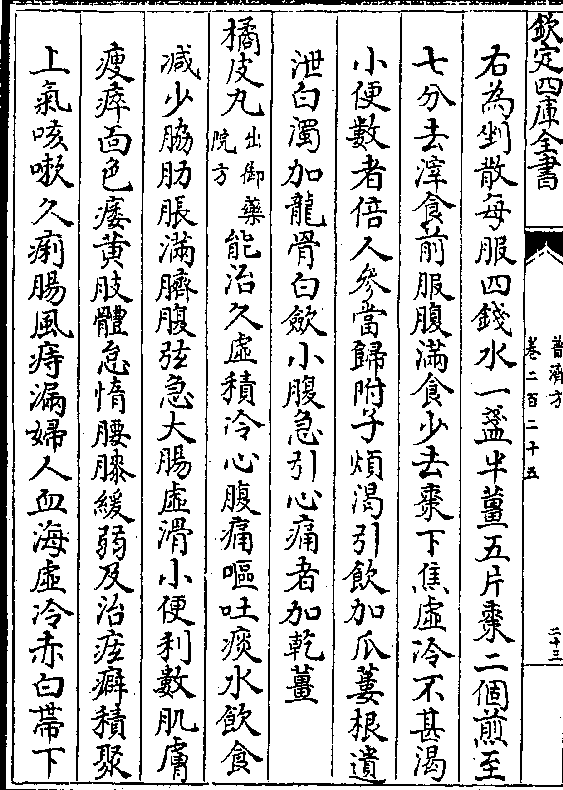 欽定四庫全書
普濟方
卷二百二十五
二十三
右為剉散每服四錢水一盞半薑五片棗二個煎至
七分去滓食前服腹滿食少去棗下焦虛冷不甚渴
小便數者倍人參當歸附子煩渴引飲加瓜蔞根遺
泄白濁加龍骨白蘞小腹急引心痛者加乾薑
橘皮丸出御藥院方能治久虛積冷心腹痛嘔吐痰水飲食
減少脇肋脹滿臍腹弦急大腸虛滑小便利數肌膚
瘦瘁面色痿黄肢體怠惰腰膝緩弱及治痃癖積聚
上氣咳嗽久痢腸風痔漏婦人血海虛冷赤白帶下